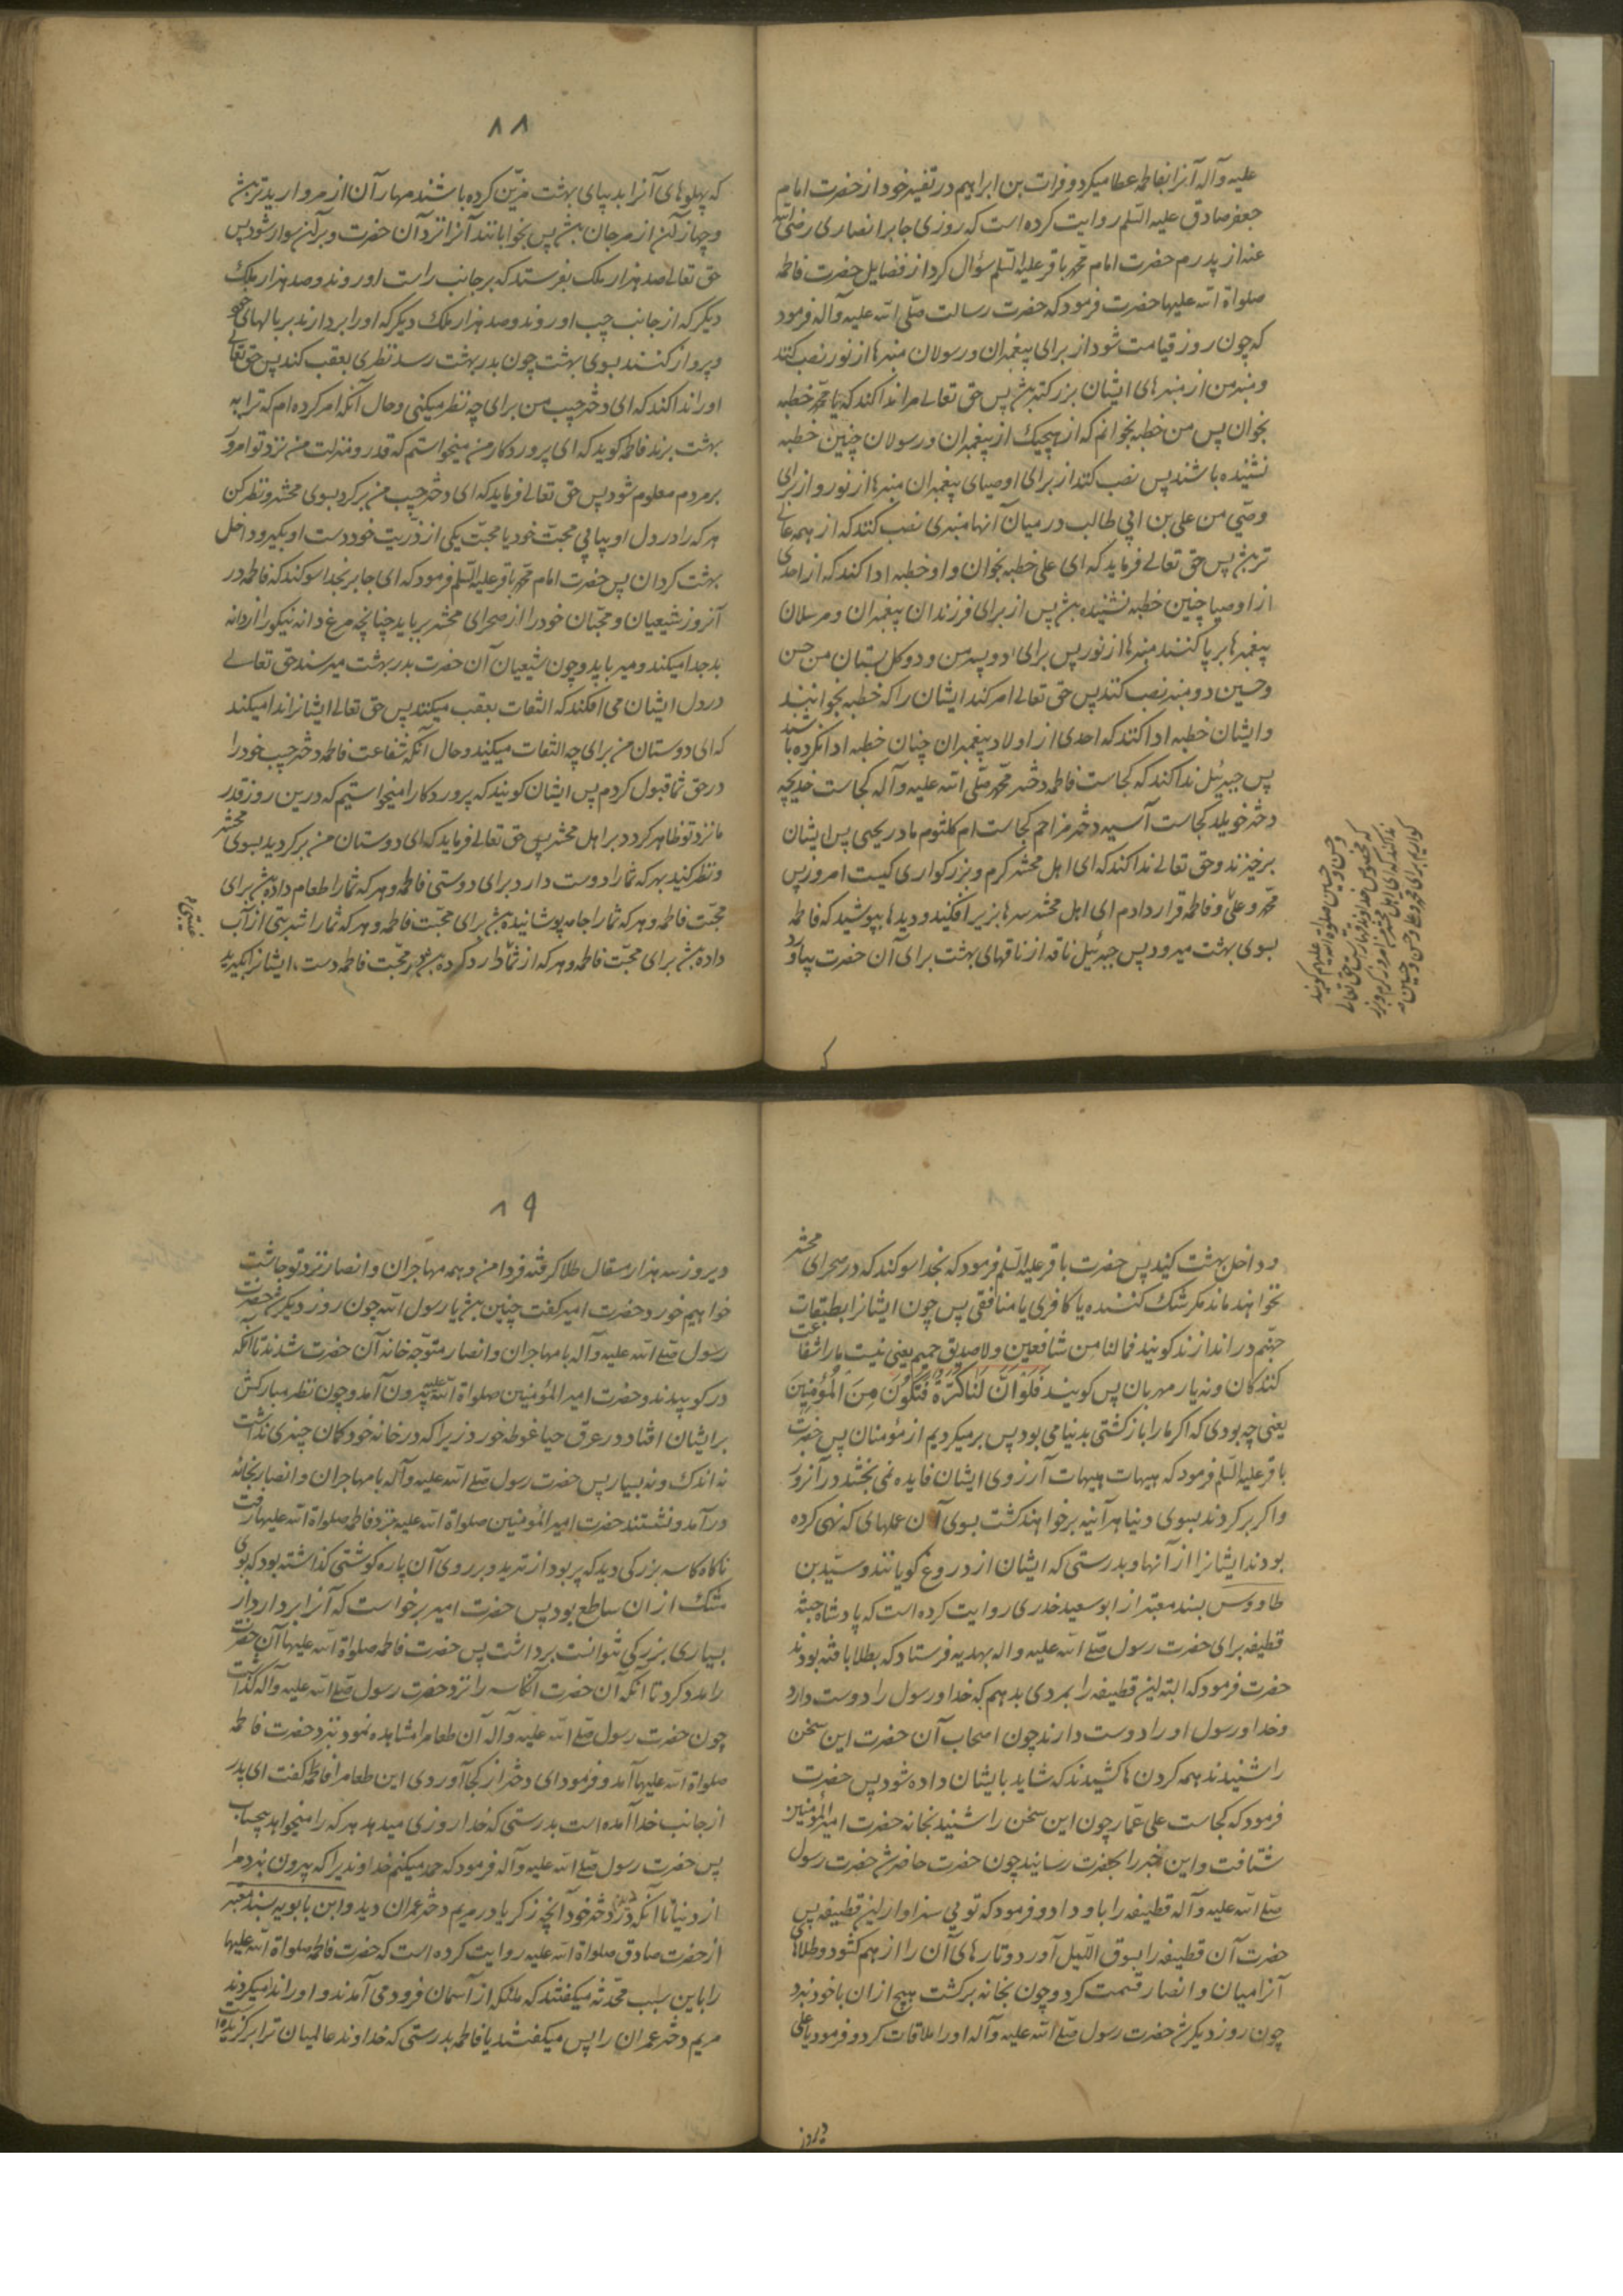 علیه وآله آنرا بفاطمه عطا میکرد و فرات بن ابراهیم در تفسیر خود از حضرت امام
جعفر صادق علیه السّلم روایت کرده است که روزی جابر انصاری رضی الله
عنه از پدرم حضرت امام محمّد باقر علیه السّلم سؤال کرد از فضایل حضرت فاطمه
صلواة الله علیها حضرت فرمود که حضرت رسالت صلّی الله علیه وآله فرمود
که چون روز قیامت شود از برای پیغمبران و رسولان منبرها از نور نصب کنند
و منبر من از منبرهای ایشان بزرکتر بش پس حق تعالی مرا ندا کند که یا محمّد خطبه
بخوان پس من خطبه بخوانم که از هیچیک از پیغمبران و رسولان چنین خطبه
نشنیده باشند پس نصب کنند از برای اوصیای پیغمبران منبرها از نور و از برای
وصّی من علی بن ابی طالب در میان آنها منبری نصب کنند که از همه عالی
تر بش پس حق تعالی فرماید که ای علی خطبه بخوان و او خطبه ادا کند که از احدی
از اوصیا چنین خطبه نشنیده بش پس از برای فرزندان پیغمبران و مرسلان
پیغمبرها بر پا کنند منبرها از نور پس برای دو پسر من و دو کل بستان من حسن
و حسین دو منبر نصب کنند پس حق تعالی امر کند ایشان را که خطبه بخوانید
و ایشان خطبه ادا کنند که احدی از اولاد پیغمبران چنان خطبه ادا نکرده باشند
پس جبرئیل ندا کند که کجاست فاطمه دختر محمّد صلّی الله علیه وآله کجاست خدیجه
دختر خویلد کجاست آسیه دختر مزاحم کجاست ام کلثوم مادر یحیی پس ایشان
برخیزند و حق تعالی ندا کند که ای اهل محشر کرم و بزرکواری کیست امروز پس
محمّد و علیّ و فاطمه قرار دادم ای اهل محشر سرها بزیر افکنید و دیدها بپوشید که فاطمه
بسوی بهشت میرود پس جبرئیل ناقه از ناقهای بهشت برای آن حضرت بیاورد
و حسن و حسین صلوة الله علیهم کویند
که مخصوص خداوند قهار است حق تعالی
ندا کند که ای اهل محشر امروز کرم و بزر
کواریم برای محمد و علی و حسن و حسین
۸۸
که پهلوهای آنرا بدیبای بهشت مزیّن کرده باشند مهار آن از مروارید تر بش
و جهاز آن از مرجان بش پس بخوابانند آنرا نزد آن حضرت و بر آن سوار شود پس
حق تعالی صد هزار ملک بفرستد که بر جانب راست او روند و صد هزار ملک
دیکر که از جانب چپ او روند و صد هزار ملک دیکر که او را بردارند بر بالهای خود
و پرواز کنند بسوی بهشت چون بدر بهشت رسد نظری بعقب کند پس حق تعالی
او را ندا کند که ای دختر حبیب من برای چه نظر میکنی و حال آنکه امر کرده ام که ترا به
بهشت برند فاطمه کوید که ای پروردکار من میخواستم که قدر و منزلت من نزد تو امروز
بر مردم معلوم شود پس حق تعالی فرماید که ای دختر حبیب من بر کرد بسوی محشر و نظر کن
هر که را در دل او بیابی محبّت خود یا محبّت یکی از ذرّیت خود دست او بکیر و داخل
بهشت کردان پس حضرت امام محمّد باقر علیه السّلم فرمود که ای جابر بخدا سوکند که فاطمه در
آنروز شیعیان و محبّان خود را از صحرای محشر برباید چنانچه مرغ دانه نیکو را از دانه
بد جدا میکند و میرباید و چون شیعیان آن حضرت بدر بهشت میرسند حق تعالی
در دل ایشان می افکند که التفات بعقب میکنند پس حق تعالی ایشانرا ندا میکند
که ای دوستان من برای چه التفات میکنید و حال آنکه شفاعت فاطمه دختر حبیب خود را
در حق شما قبول کردم پس ایشان کویند که پروردکارا میخواستیم که درین روز قدر
ما نزد تو ظاهر کردد بر اهل محشر پس حق تعالی فرماید که ای دوستان من بر کردید بسوی محشر
و نظر کنید بهر که شما را دوست دارد برای دوستی فاطمه و هر که شما را طعام داده بش برای
محبّت فاطمه و هر که شما را جامه پوشانیده بش برای محبّت فاطمه و هر که شما را شربتی از آب
داده بش برای محبّت فاطمه و هر که از شما رد کرده بش برای محبّت فاطمه دست ایشانرا بکیرید
غیبتی
و داخل بهشت کنید پس حضرت باقر علیه السّلم فرمود که بخدا سوکند که در صحرای محشر
نخواهند ماند مکر شک کننده یا کافری یا منافقی پس چون ایشانرا بطبقات
جهنّم در اندازند کویند فمالنا من شافعین ولا صدیق حمیم یعنی نیست ما را شفاعت
کنندکان و نه یار مهربان پس کویند فَلَوْ اَنَّ لَنَا کَرَّةً فَنَکُونَ مِنَ الْمُؤْمِنِینَ
یعنی چه بودی که اکر ما را باز کشتی بدنیا می بود پس بر میکردیم از مؤمنان پس حضرت
باقر علیه السّلم فرمود که هیهات هیهات آرزوی ایشان فایده نمی بخشد در آنروز
و اکر بر کردند بسوی دنیا هر آینه بر خواهند کشت بسوی آن عملهای که نهی کرده
بودند ایشانرا از آنها و بدرستی که ایشان از دروغ کویانند و سیّد بن
طاووس بسند معتبر از ابو سعید خدری روایت کرده است که پادشاه حبشه
قطیفه برای حضرت رسول صلّی الله علیه واله بهدیه فرستاد که بطلا بافته بودند
حضرت فرمود که البته این قطیفه را بمردی بدهم که خدا و رسول را دوست دارد
و خدا و رسول او را دوست دارند چون اصحاب آن حضرت این سخن
را شنیدند همه کردن ها کشیدند که شاید بایشان داده شود پس حضرت
فرمود که کجاست علی عمّار چون این سخن را شنید بخانه حضرت امیر المؤمنین
شتافت و این خبر را بحضرت رسانید چون حضرت حاضر شد حضرت رسول
صلّی الله علیه وآله قطیفه را باو داد و فرمود که تویی سزاوار این قطیفه پس
حضرت آن قطیفه را بسوق اللیل آورد و تارهای آن را از هم کشود و طلاهای
آنرا میان و انصار قسمت کرد و چون بخانه برکشت هیچ از آن با خود نبرد
چون روز دیکر شد حضرت رسول صلّی الله علیه وآله او را ملاقات کرد و فرمود یا علی
دیروز
۸۹
دیروز سه هزار مسقال طلا کرفته فردا من و همه مهاجران و انصار نزد تو چاشت
خواهیم خورد حضرت امیر کفت چنین بش یا رسول الله چون روز دیکر شد حضرت
رسول صلّی الله علیه وآله با مهاجران و انصار متوجّه خانه آن حضرت شدند تا آنکه
در کوبیدند و حضرت امیر المؤمنین صلواة الله علیه بیرون آمد و چون نظر مبارکش
بر ایشان افتاد در عرق حیا غوطه خورد زیرا که در خانه خود کمان چیزی نداشت
نه اندک و نه بسیار پس حضرت رسول صلّی الله علیه وآله با مهاجران و انصار بخانه
در آمد و نشستند حضرت امیر المؤمنین صلواة الله علیه نزد فاطمه صلواة الله علیها رفت
ناکاه کاسه بزرکی دید که پر بود از ترید و بر روی آن پاره کوشتی کذاشته بود که بوی
مشک از ان ساطع بود پس حضرت امیر برخواست که آنرا بردارد از
بسیاری بزرکی نتوانست برداشت پس حضرت فاطمه صلواة الله علیها آن حضرت
را مدد کرد تا آنکه آن حضرت آنکاسه را نزد حضرت رسول صلّی الله علیه وآله کذاشت
چون حضرت رسول صلّی الله علیه وآله آن طعام را مشاهده نمود بنزد حضرت فاطمه
صلواة الله علیها آمد و فرمود ای دختر از کجا آوردی این طعام را فاطمه کفت ای پدر
از جانب خدا آمده است بدرستی که خدا روزی میدهد هر که را میخواهد بیحساب
پس حضرت رسول صلّی الله علیه وآله فرمود که حمد میکنم خداوندیرا که بیرون نبرد مرا
از دنیا تا آنکه دیدم در دختر خود آنچه زکریا در مریم دختر عمران دید و ابن بابویه بسند معتبر
از حضرت صادق صلواة الله علیه روایت کرده است که حضرت فاطمه صلواة الله علیها
را باین سبب محدّثه میکفتند که ملائکه از آسمان فرود می آمدند و او را ندا میکردند
مریم دختر عمران را پس میکفتند یا فاطمه بدرستی که خداوند عالمیان ترا برکزیده است